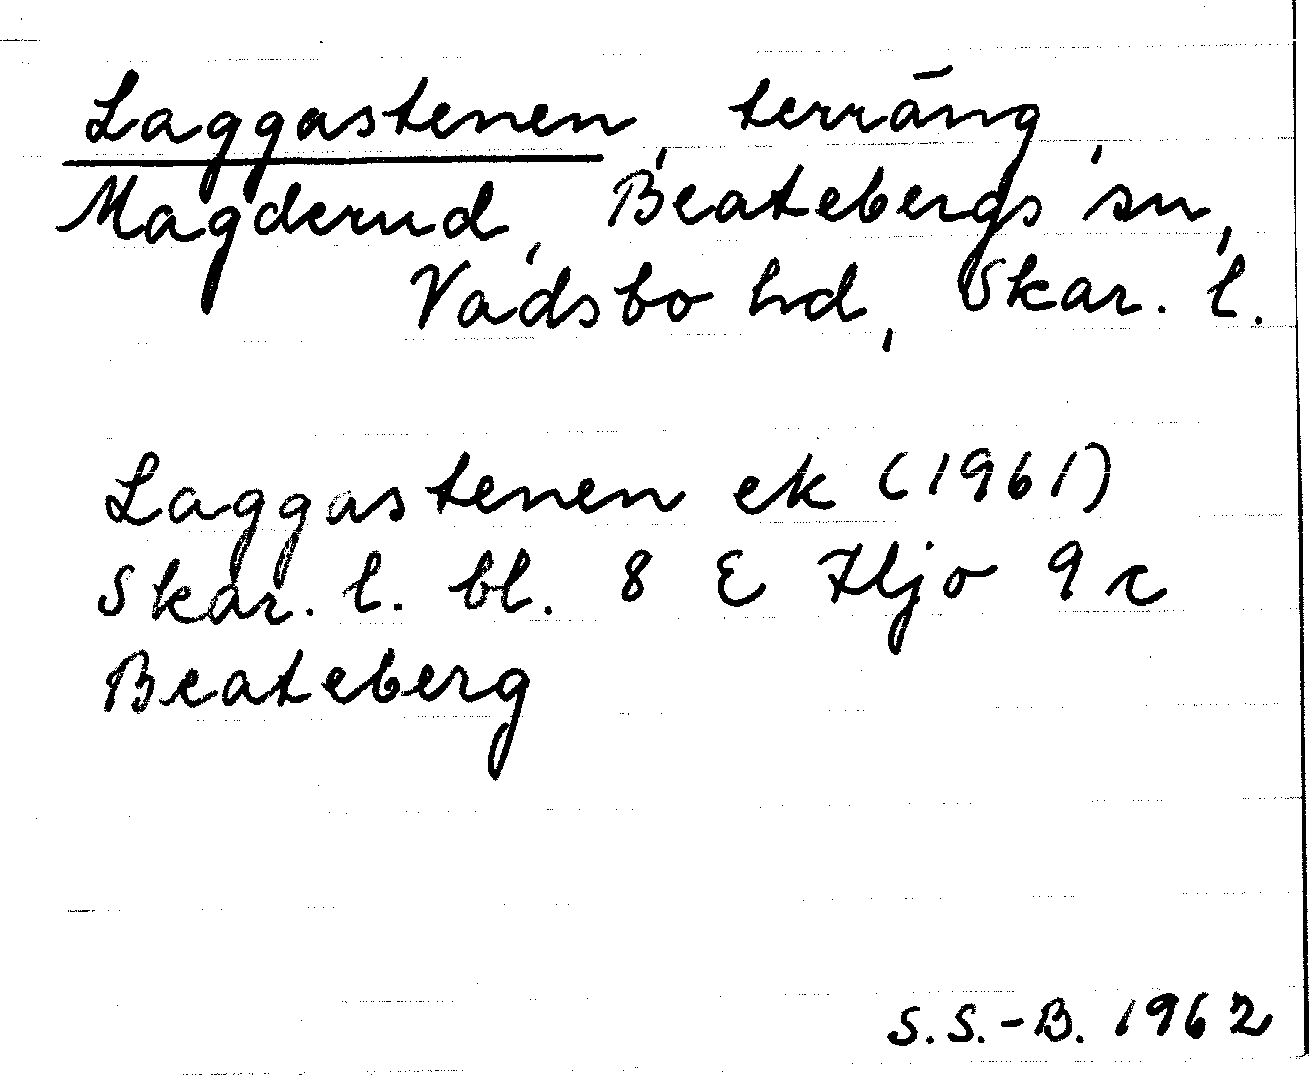 Laggastenen, terräng,
Magderud, Beatebergs sn,
Vadsbo hd, Skar. l.
Laggastenen ek (1961)
Skar. l. bl. 8 E Hjo 9 c
Beateberg
S.S.-B. 1962